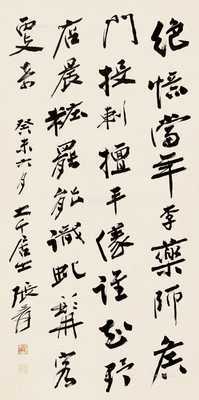 絕憶當年李藥師侯
門投刺擅平儀誰知野
店晨粧罷能識虬髯客
癸未六月大千居士張爰